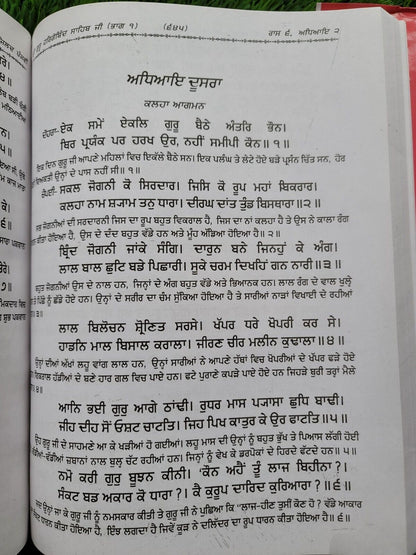 ਹਰਿਗੋਬਿੰਦ ਸਾਹਿਬ ਜੀ (ਭਾਗ ੧) (੬੪੫) ਰਾਸ ੬. ਅਧਿਆਇ ੨
ਅਧਿਆਇ ਦੂਸਰਾ
ਕਲਹਾ ਆਗਮਨ
ਦੋਹਰਾ-ਏਕ ਸਮੇਂ ਏਕਲਿ ਗੁਰੂ ਬੈਠੇ ਅੰਤਰਿ ਭੌਨ।
ਥਿਰ ਪ੍ਰਯੰਕ ਪਰ ਹਰਖ ਉਰ, ਨਹੀਂ ਸਮੀਪੀ ਕੌਨ॥੧॥
ਇਕ ਦਿਨ ਗੁਰੂ ਜੀ ਆਪਣੇ ਮਹਿਲਾਂ ਵਿਚ ਇਕੱਲੇ ਬੈਠੇ ਸਨ। ਇਕ ਪਲੰਘ ਤੇ ਲੇਟੇ ਹੋਏ ਬੜੇ ਪ੍ਰਸੰਨ ਚਿੱਤ ਸਨ, ਹੋਰ
ਉਨ੍ਹਾਂ ਦੇ ਪਾਸ ਨਹੀਂ ਸੀ॥੧॥
ਚੌਪਈ-ਸਕਲ ਜੋਗਨੀ ਕੋ ਸਿਰਦਾਰ। ਜਿਸਿ ਕੋ ਰੂਪ ਮਹਾਂ ਬਿਕਰਾਰ।
ਕਲਹਾ ਨਾਮ ਸ਼੍ਯਾਮ ਤਨੁ ਧਾਰਾ। ਦੀਰਘ ਦਾਂਤ ਤੁੰਡ ਬਿਸਥਾਰਾ॥੨॥
ਸਭ ਜੋਗਨੀਆਂ ਦੀ ਸਰਦਾਰਨੀ ਜਿਸ ਦਾ ਰੂਪ ਬਹੁਤ ਵਿਕਰਾਲ ਹੈ, ਜਿਸ ਦਾ ਨਾਂ ਕਲਹਾ ਹੈ ਤੇ ਉਸ ਨੇ ਕਾਲਾ ਰੰਗ
ਕੀਤਾ ਹੋਇਆ ਹੈ, ਉਸ ਦੇ ਦੰਦ ਬਹੁਤ ਵੱਡੇ ਹਨ ਅਤੇ ਮੂੰਹ ਅੱਡਿਆ ਹੋਇਆ ਹੈ॥੨॥
ਬ੍ਰਿੰਦ ਜੋਗਨੀ ਜਾਂਕੇ ਸੰਗਿ। ਦਾਰੁਨ ਬਨੇ ਜਿਨਹੁਂ ਕੇ ਅੰਗ।
ਲਾਲ ਬਾਲ ਛੁਟਿ ਬਡੇ ਪਿਛਾਰੀ। ਸੂਕੇ ਚਰਮ ਦਿਖਹਿਂ ਗਨ ਨਾਰੀ॥੩॥
ਬਹੁਤ ਜੋਗਨੀਆਂ ਉਸ ਦੇ ਨਾਲ ਹਨ, ਜਿਨ੍ਹਾਂ ਦੇ ਅੰਗ ਬਹੁਤ ਵੱਡੇ ਅਤੇ ਭਿਆਨਕ ਹਨ। ਲਾਲ ਰੰਗ ਦੇ ਵਾਲ ਖੁਲ੍ਹੇ
ਤੇ ਪਿੱਠ ਨੂੰ ਛੱਡੇ ਹੋਏ ਹਨ। ਉਨ੍ਹਾਂ ਦੇ ਸਰੀਰ ਦਾ ਚੰਮ ਸੁੱਕਿਆ ਹੋਇਆ ਹੈ ਤੇ ਸਾਰੀਆਂ ਨਾੜਾਂ ਵਿਖਾਈ ਦੇ ਰਹੀਆਂ
॥੩॥
ਲਾਲ ਬਿਲੋਚਨ ਸ੍ਰੋਣਿਤ ਸਰਸੇ। ਖੱਪਰ ਧਰੇ ਖੋਪਰੀ ਕਰ ਸੇ।
ਹਾਡਨਿ ਮਾਲ ਬਿਸਾਲ ਕਰਾਲਾ। ਜੀਰਣ ਚੀਰ ਮਲੀਨ ਕੁਢਾਲਾ॥੪॥
ਉਨ੍ਹਾਂ ਦੀਆਂ ਅੱਖਾਂ ਲਹੂ ਵਾਂਗ ਲਾਲ ਹਨ, ਉਨ੍ਹਾਂ ਸਾਰੀਆਂ ਨੇ ਆਪਣੇ ਹੱਥਾਂ ਵਿਚ ਖੋਪਰੀਆਂ ਦੇ ਖੱਪਰ ਫੜੇ ਹੋਏ
ਵਿਕਰਾਲ ਹੱਡੀਆਂ ਦੇ ਬਣੇ ਹਾਰ ਗਲ ਵਿਚ ਪਾਏ ਹਨ। ਫਟੇ ਪੁਰਾਣੇ ਕਪੜੇ ਪਾਏ ਹੋਏ ਹਨ ਜਿਹੜੇ ਬੁਰੀ ਤਰ੍ਹਾਂ ਮੈਲੇ
॥੪॥
ਆਨਿ ਭਈ ਗੁਰੂ ਆਗੇ ਠਾਂਢੀ। ਰੁਧਰ ਮਾਸ ਪ੍ਯਾਸਾ ਛੁਧਿ ਬਾਢੀ।
ਜੀਹ ਦੀਹ ਸੋਂ ਓਸ਼ਟ ਚਾਟਤਿ। ਜਿਹ ਪਿਖ ਕਾਤੁਰ ਕੇ ਉਰ ਫਾਟਤਿ॥੫॥
ਉਹ ਗੁਰੂ ਜੀ ਦੇ ਸਾਹਮਣੇ ਆ ਕੇ ਖੜੀਆਂ ਹੋ ਗਈਆਂ। ਲਹੂ ਮਾਸ ਦੀ ਉਨ੍ਹਾਂ ਨੂੰ ਬਹੁਤ ਭੁੱਖ ਤੇ ਪਿਆਸ ਲੱਗੀ ਹੋਈ
ਵੱਡੀਆਂ-ਵੱਡੀਆਂ ਜ਼ਬਾਨਾਂ ਨਾਲ ਬੁਲ੍ਹ ਚੱਟ ਰਹੀਆਂ ਹਨ। ਜਿਨ੍ਹਾਂ ਨੂੰ ਵੇਖ ਕੇ ਡਰਪੋਕਾਂ ਦੇ ਹਿਰਦੇ ਫੱਟਦੇ ਹਨ॥੫॥
ਨਮੋ ਕਰੀ ਗੁਰੁ ਬੂਝਨ ਕੀਨੀ। 'ਕੌਨ ਅਹੈਂ ਤੂੰ ਲਾਜ ਬਿਹੀਨਾ ?।
ਸੰਕਟ ਬਡ ਅਕਾਰ ਕੋ ਧਾਰਾ ?। ਕੈ ਕੁਰੂਪ ਦਾਰਿਦ ਕੁਰਿਆਰਾ ?॥੬॥
ਉਨ੍ਹਾਂ ਜਾ ਕੇ ਗੁਰੂ ਜੀ ਨੂੰ ਨਮਸਕਾਰ ਕੀਤੀ ਤੇ ਗੁਰੂ ਜੀ ਨੇ ਪੁਛਿਆ ਕਿ "ਲਾਜ-ਹੀਣ ਤੁਸੀਂ ਕੌਣ ਹੋ ? ਵੱਡੇ ਆਕਾਰ
ਧਾਰਨ ਕੀਤਾ ਹੋਇਆ ਹੈ, ਇੰਝ ਲਗਦਾ ਹੈ ਜਿਵੇਂ ਕੂੜ ਨੇ ਦਲਿੱਦਰ ਦਾ ਰੂਪ ਧਾਰਨ ਕੀਤਾ ਹੋਇਆ ਹੈ॥੬॥